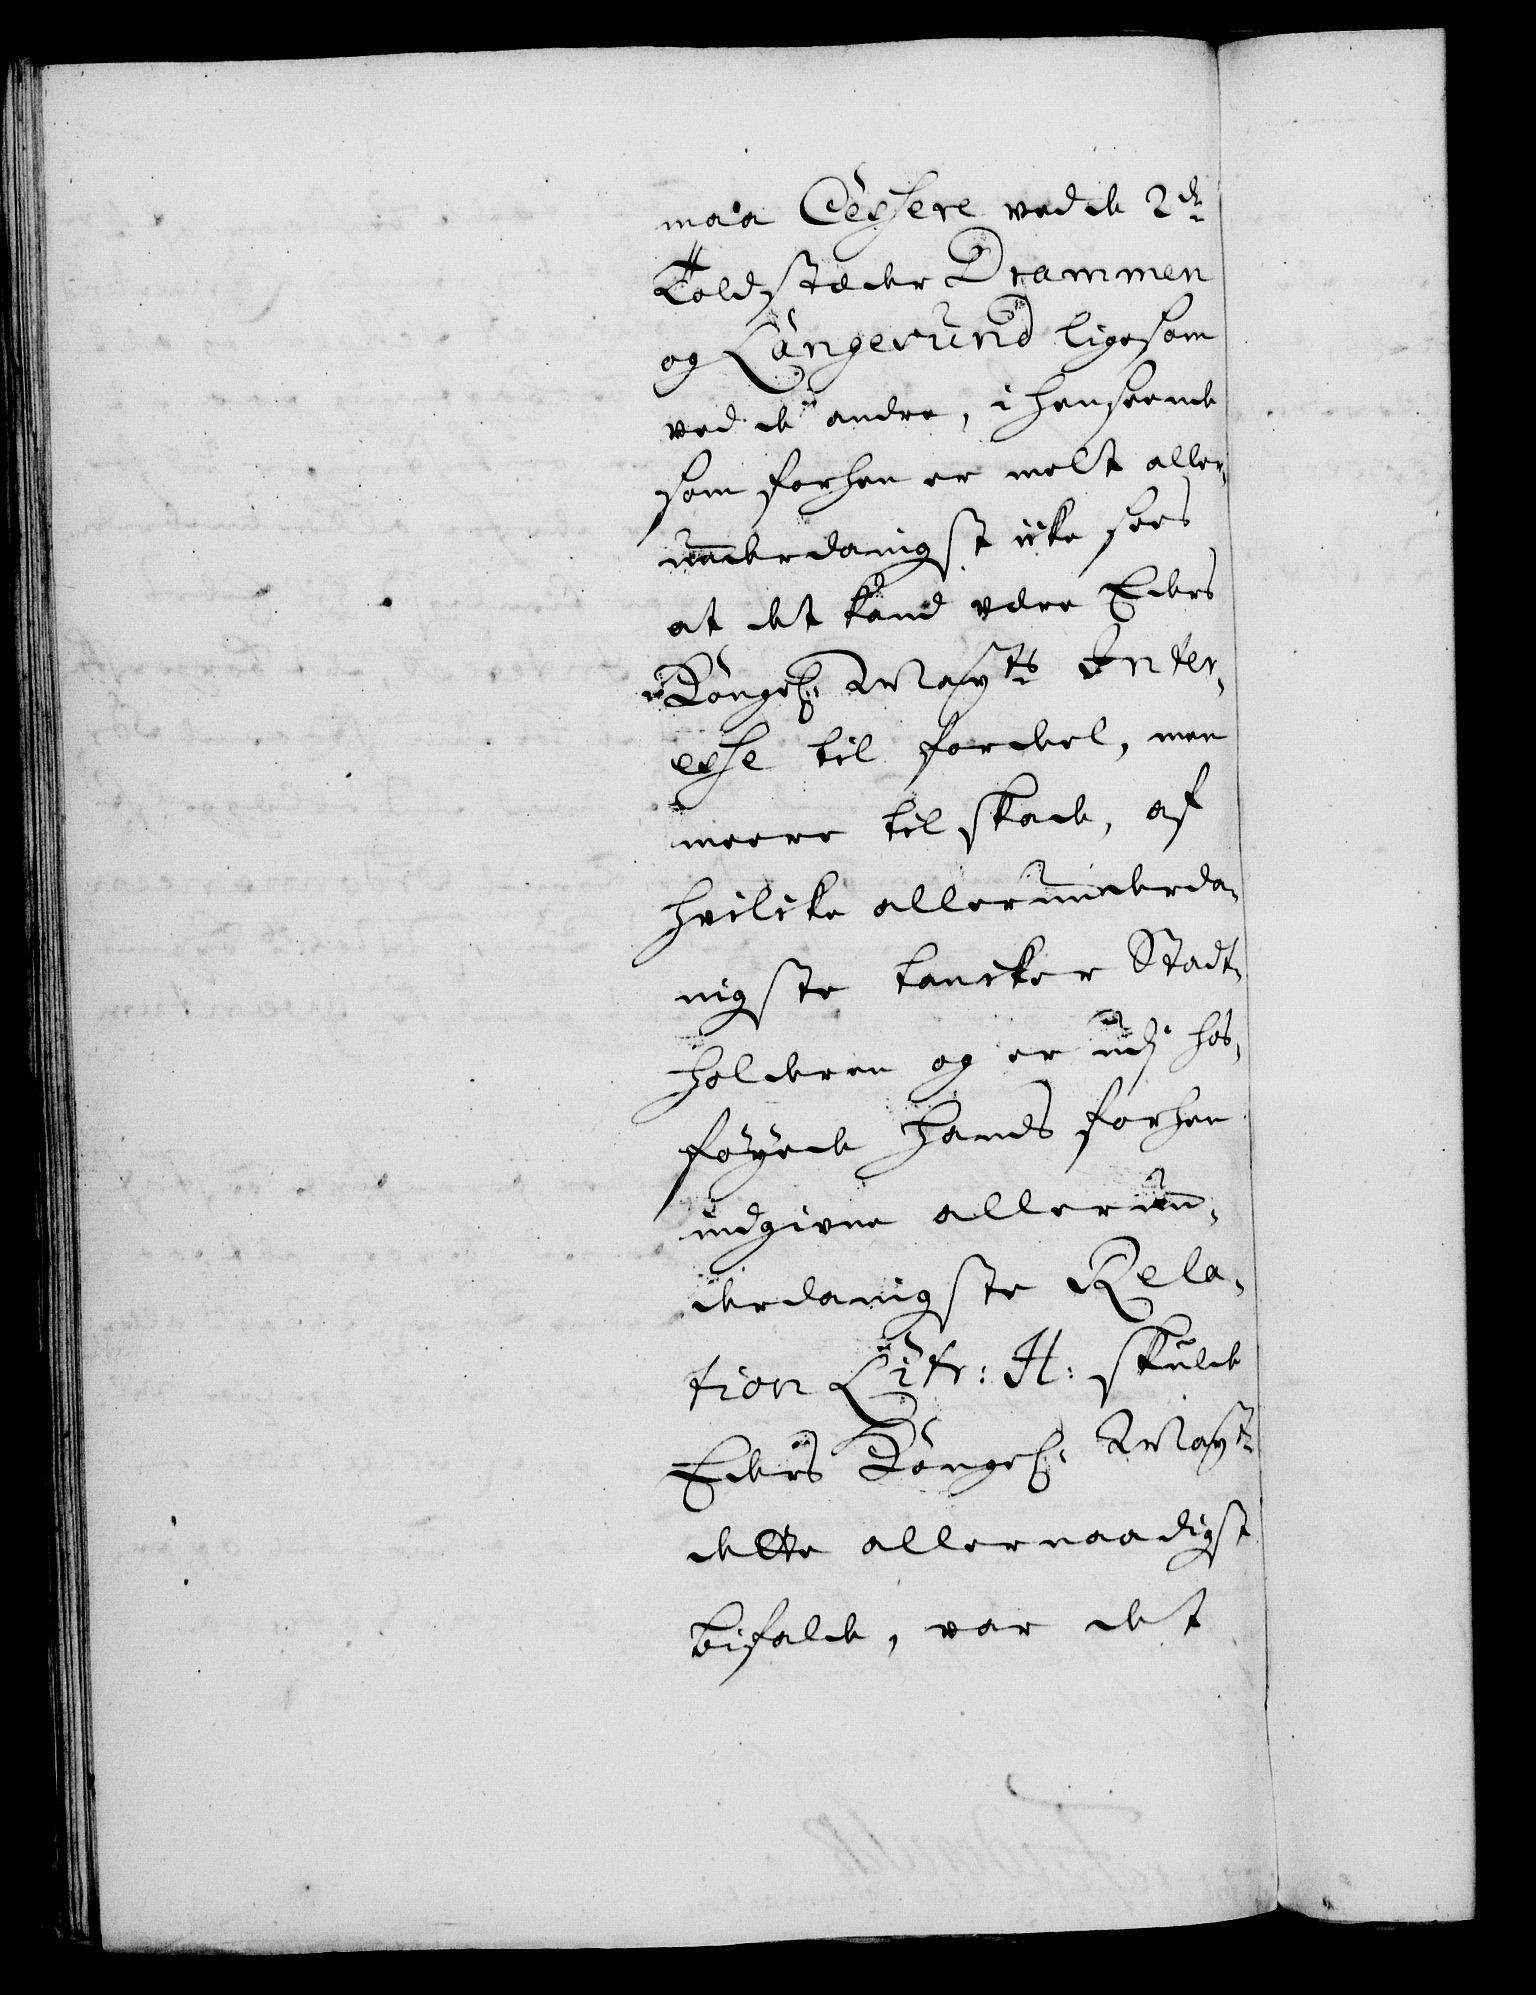 maa Cessere ved de 2de
Toldstæder Drammen
og Langesund ligesom
ved de andre, i henseende
som forhen er melt aller,
underdanigst icke sees
at det kand være Eders
Kongel: Mayts Inter,
esse til fordel, men
meere til skade, af
hvilcke allerunderda,
nigste tancker Stadt,
holderen og er udj hos,
føyede hands forhen
indgivne allerun,
derdanigste Rela,
tion Litr: H: skulde
Eders Kongel: Mayt
dette allernaadigst
bifalde, var det